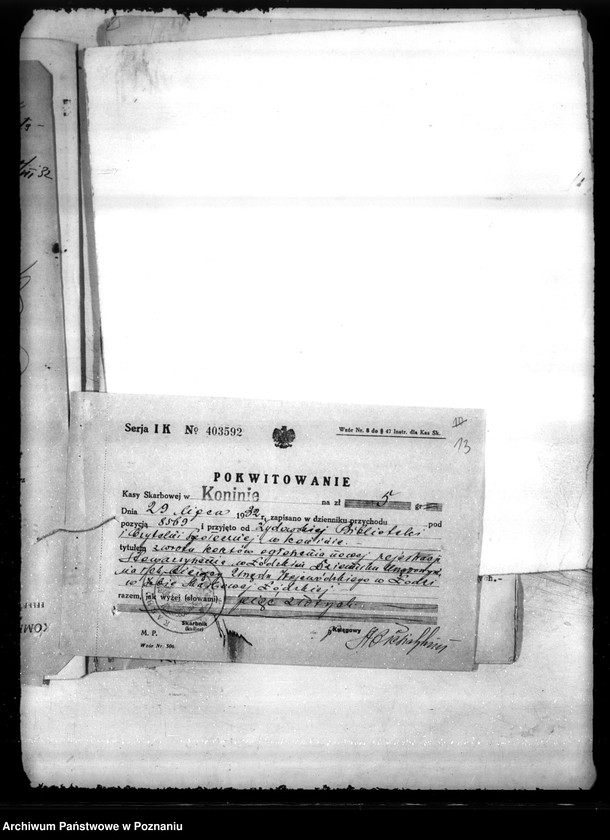 VII 32
Serja I K № 403592
Wzór Nr. 8 do § 47 Instr. dla Kas Sk.
10
13
POKWITOWANIE
Kasy Skarbowej w Koninie na zł 5 gr
Dnia 29 lipca 1932 r., zapisano w dzienniku przychodu pod
pozycją 8569 i przyjęto od Żydowskiej Biblioteki
i Czytelni Społecznej w Koninie
tytułem zwrotu kosztów ogłoszenia nowej rejestracji
Stowarzyszenia w Łódzkim Dzienniku Urzędowym
na rach. bieżący Urzędu Wojewódzkiego w Łodzi
w Izbie Skarbowej Łódzkiej
razem, jak wyżej (słowami): pięć złotych
Skarbnik
(kasjer)
Księgowy
M. P.
Wzór Nr. 50b.
Archiwum Państwowe w Poznaniu